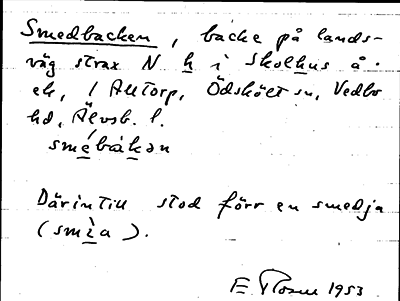 Smedbacken, backe på lands-
väg strax N h i Skolhus å
ek, 1 Alltorp, Ödskölt sn, Vedbo
hd, Älvsb. l.
smébàkən
Därintill stod förr en smedja
(smìa).
E. 1953